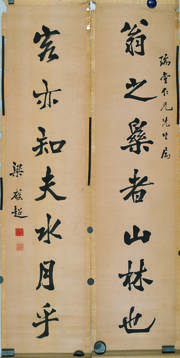 瑞仁兄先生属
翁之樂者山林也
客亦知夫水月乎
梁啟超